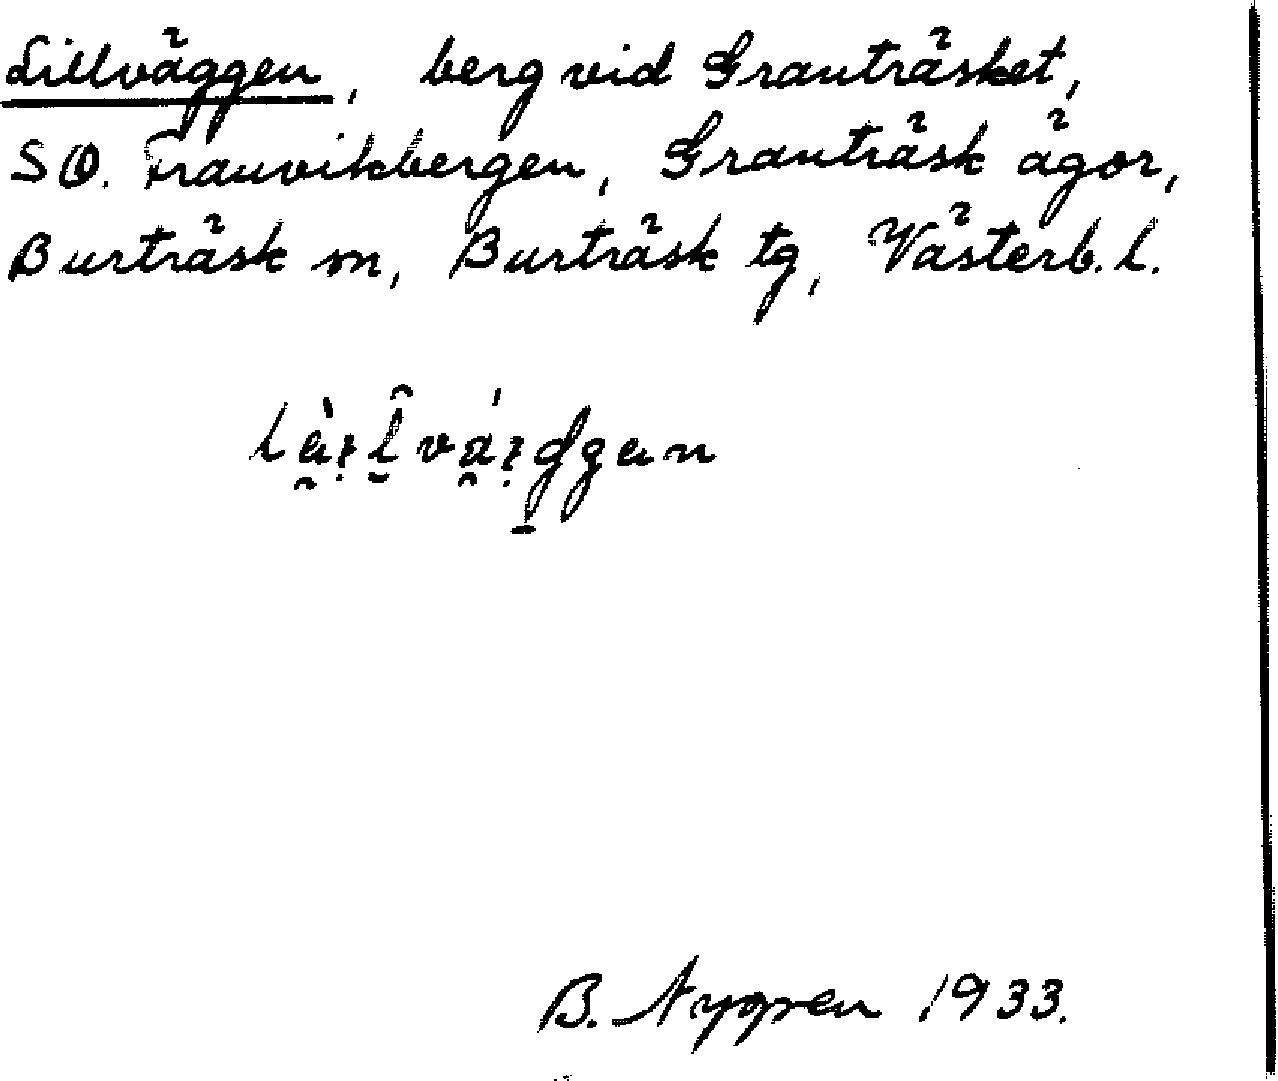 Lillväggen, berg vid Granträsket,
SO. Franvikbergen, Granträsk ägor,
Burträsk sn, Burträsk tg, Västerb. l.
B. Nygren 1933.